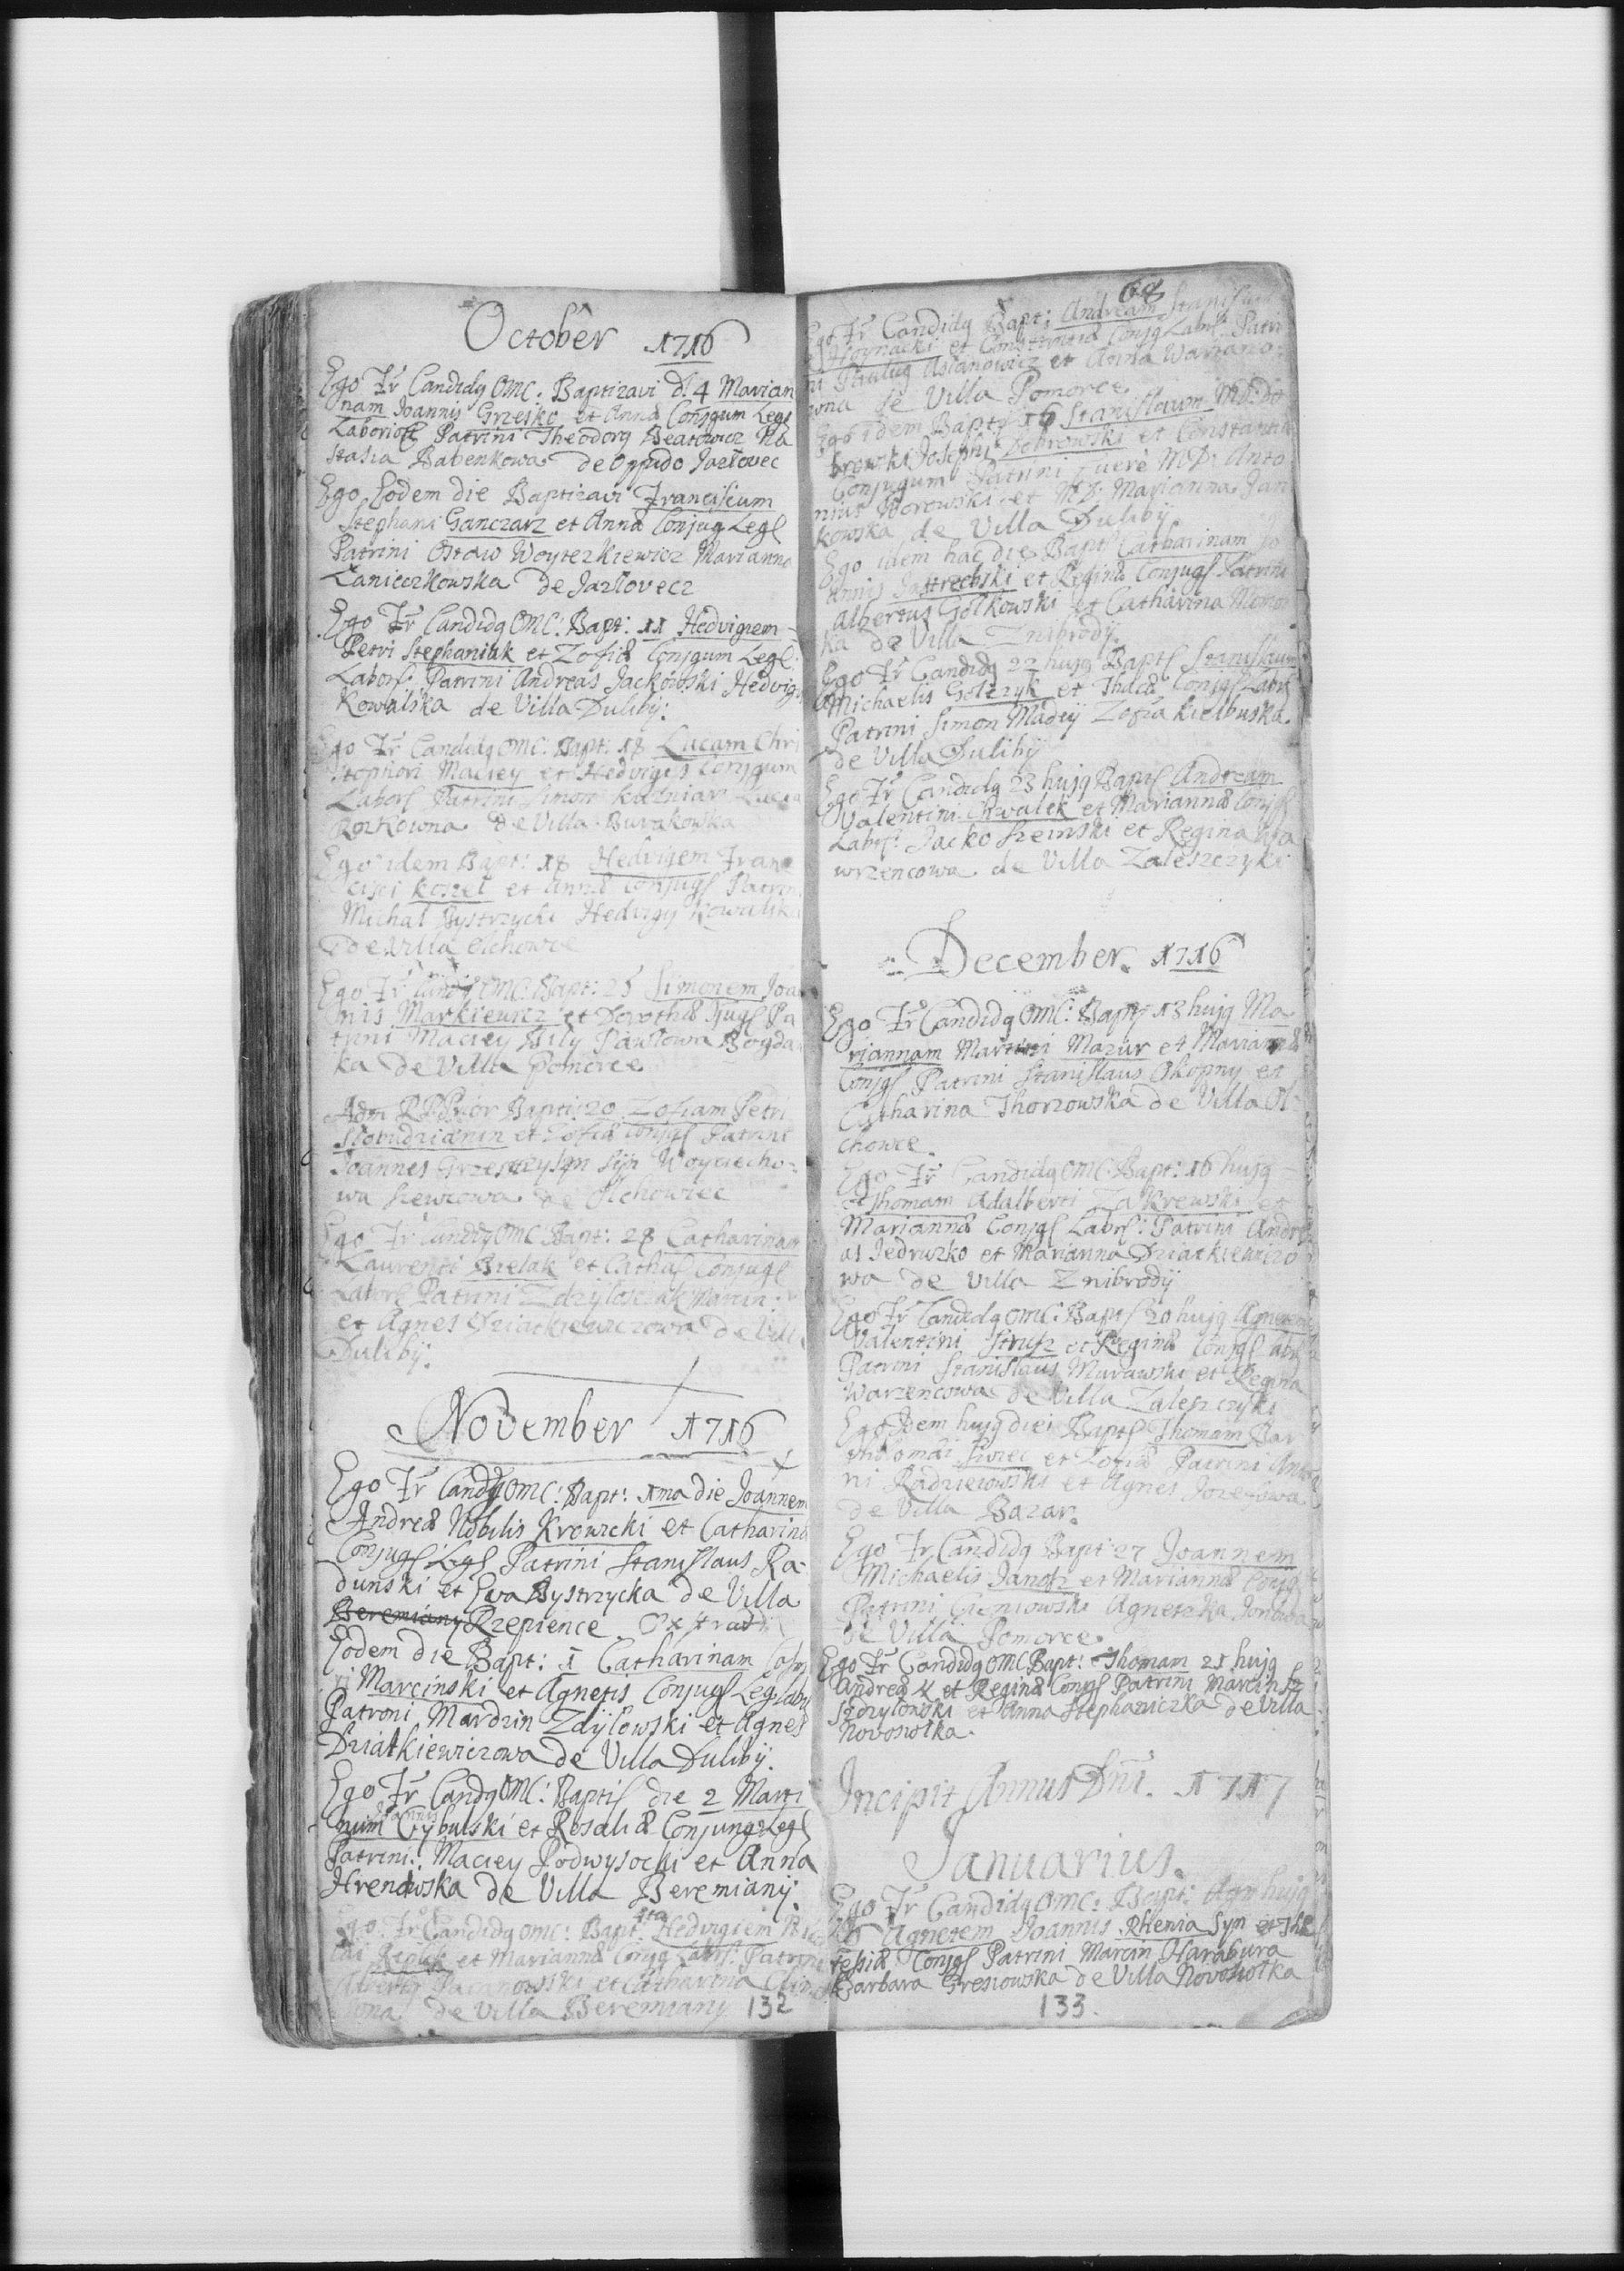 October 1716
Ego Fr Candidq OMC: Baptizavi d: 4 Marian
nam Joannis Grzesko et Anna Conjgum Legs
Patrini Theodorq Beatowicz Na
stasia Babenkowa de Oppido Jazlovec
Ego Eodem die Baptizavi Franciscum
Stephani Ganczarz et Anna Conjug Legl
Patrini Ostaw Woytezkiewicz Marianna
Lanieczkowska de Jazlovecz
Ego Fr Candidq OMC: Bapt: 11 Hedvigiem
Petri Stephaniuk et Zofia Conjgum Legl:
Labors: Patrini Andreas Jackowski Hedvigs
Kowalska de Villa Dulibÿ:
Ego Fr Candidq OMC: Bapt: 18 Lucam Chri
stophori Maciey et Hedvigis Conjgum
Labors Patrini Simon Kuzniar Lucia
de Villa Burakowska
Ego idem Bapt: 18 Hedvigem Fran
cisci Koszel et Anna Conjugs Patrini
Michal Bystrzycki Hedvigs Kowalska
de Villa Olchowce
Ego Fr Candq OMC: Bapt: 25 Simonem Joa
nis Markiewicz et Dorotha Pa
trini Maciey Bily Pawlowa Boyda
ka de Villa Pomorce
RP Prior Bapti: 20 Zofiam Petri
et Zofia Conjgs Patrini
Joannes Syn Woyciecho=
wa Szewcowa de Olchowiec
Ego Fr Candq OMC Bapt: 28 Catharinam
Laurenti Bielak et Cathas Conjugs
Labors Patrini Marcin:
et Agnes Dziatkiewiczowa de Villa
Dulibÿ:
November 1716
Ego Fr Candq OMC: Bapt: 1ma die Joannem
Andrea Nobilis Krowicki et Catharina
Conjugs Legs Patrini Stanislaus Ra-
dunski et Eva Bystrzycka de Villa
Beremiany Rzepience.
Eodem die Bapt: 1 Catharinam
ri Marcinski et Agnetis Conjugs Leg
Patroni Mardzin Zdÿlowski et Agnes
Dziatkiewiczowa de Villa Dulibÿ:
Ego Fr Candq OMC: Baptis die 2 Marti
Joannis
num Cybulski et Rosalia Conjung Legs
Patrini: Maciey Podwysocki et Anna
Hrenowska de Villa Beremianÿ:
Ego Fr Candidq OMC: Bapt: 4ta Hedvigiem
et Marianna Conjg Labrs: Patrini
Albertq et Catharina
de Villa Beremiany 132
68
Ego Fr Candidq Bapt: Andream Stanislai
Hoynacki et Constantia Conjg Labrs Patri
ni Paulus Asłanowicz et Anna Wariano-
wna de Villa Pomorce
Ego idem Bapts 16 Stanislaum MD: Do
browski Josephi Dobrowski et Constantia
Conjugum Patrini fuerè MD: Anto
nius Worowski et MD: Marianna Jan
kowska de Villa Dulibÿ
Ego idem hac die Bapts Catharinam Jo
annis Jastrebski et Regina Conjugs Patrini
Albertus Golkowski et Catharina
ka de Villa Znibrodÿ.
Ego Fr Candidq 22 hujq Bapts Stanislaum
Michaelis Golczyk et Conjgs Labrs
Patrini Simon Madeÿ Zofia Kielbuska.
de Villa Dulibÿ
Ego Fr Candidq 23 hujq Bapts Andream
Valentini Chwalek et Marianna Conjgs
Labrs: Jacko et Regina Wa
wrzencowa de Villa Zaleszczyki
December. 1716
Ego Fr Candidq OMC: Bapts 13 hujq Ma
riannam Martini Mazur et Marianna
Conjgs Patrini Stanislaus Okopny et
Catharina Thorzowska de Villa Ol=
chowce.
Ego Fr Candidq OMC: Bapt: 16 hujq
Thomam Adalberti Zakrewski et
Marianna Conjgs Labrs: Patrini Andre
as Jedruzko et Marianna Dziatkiewiczo
wa de Villa Znibrodÿ
Ego Fr Candidq OMC: Bapts 20 hujq Agnetem
Valentini et Regina Conjgs Labrs
Patrini Stanislaus Murawski et Regina
Warzencowa de Villa Zaleszczyki
Ego Idem hujq diei Bapts Thomam Bar
tholomai et Zofia Patrini Anto
ni Radziejowski et Agnes Jozefowa
de Villa Bazar.
Ego Fr Candidq Bapt 27 Joannem
Michaelis et Marianna Conjg
Patrini Cieniowski Agneszka
de Villa Pomorce.
Ego Fr Candidq OMC Bapt: Thomam 21 hujq
Andrea et Regina Conjs Patrini Marcin
Sędzylowski et Anna Stephaniczka de Villa
Novosiołka.
Incipit Annus Dni. 1717
Januarius.
Ego Fr Candidq OMC: Bapt: hujq
Agnetem Joannis Rhenia Syn et The
resia Conjgs Patrini Marcin Harabura
Barbara Gresiowska de Villa Novosiołka
133.